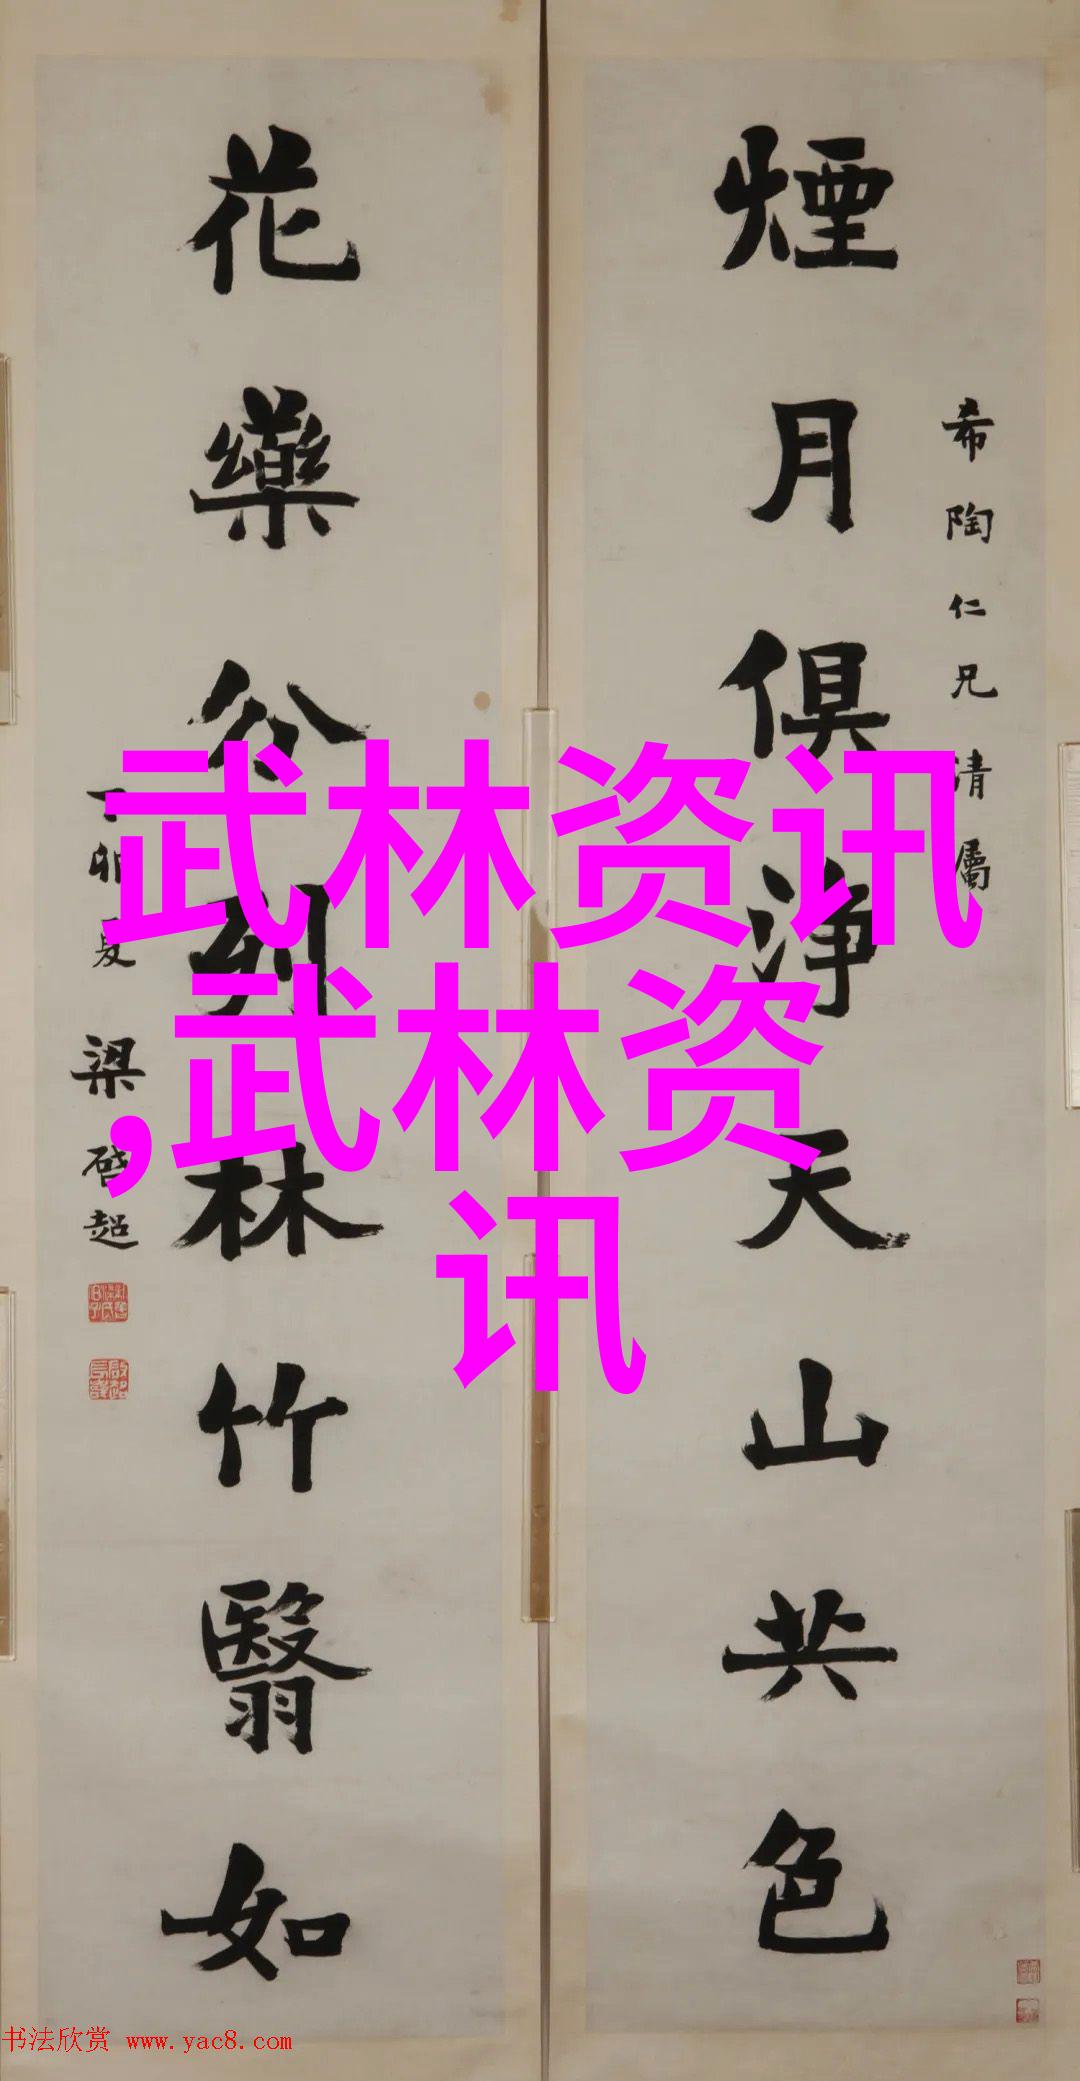 煙月俱淨天山共色
希陶仁兄清屬
花藥分列林竹翳如
丁卯夏 梁啟超
武林资讯
,武林资
讯
书法欣赏 www.yac8.com